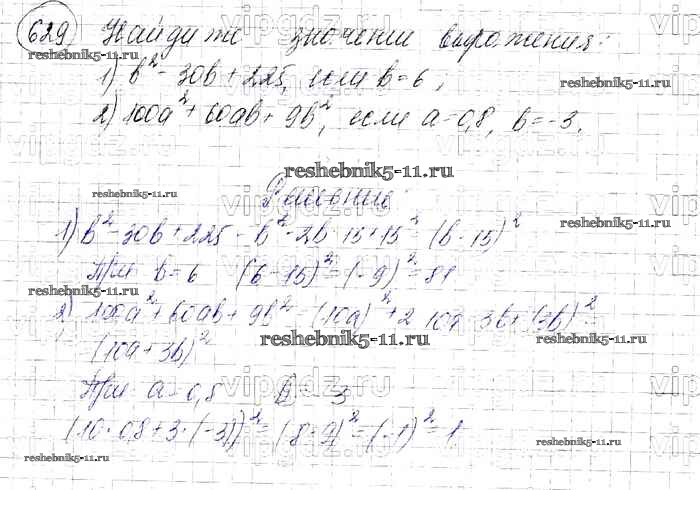 629 Найдите значении выражения:
1) b² - 30b + 225, если b = 6;
2) 100a² + 60ab + 9b², если a = 0,8, b = -3.
reshebnik5-11.ru
Решение:
1) b² - 30b + 225 = b² - 2b · 15 + 15² = (b - 15)²
При b = 6 (6 - 15)² = (-9)² = 81
2) 100a² + 60ab + 9b² = (10a)² + 2 · 10a · 3b + (3b)² =
(10a + 3b)²
При a = 0,8 b = -3
(10 · 0,8 + 3 · (-3))² = (8 - 9)² = (-1)² = 1
reshebnik5-11.ru